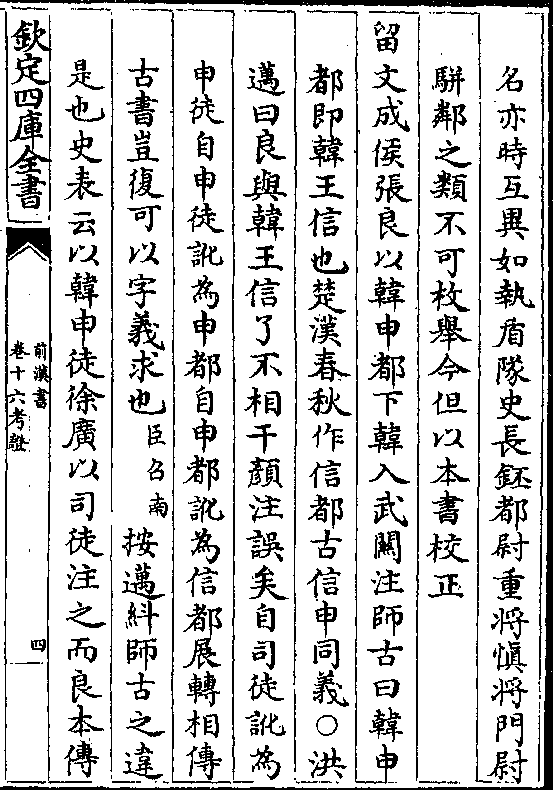 名亦時互異如執盾隊史長鈺都尉重將慎將門尉
駢鄰之類不可枚舉今但以本書校正
留文成侯張良以韓申都下韓入武關注師古曰韓申
都即韓王信也楚漢春秋作信都古信申同義○洪
邁曰良與韓王信了不相干顏注誤矣自司徒訛為
申徒自申徒訛為申都自申都訛為信都展轉相傳
古書豈復可以字義求也臣召南按邁糾師古之違
是也史表云以韓申徒徐廣以司徒注之而良本傳
欽定四庫全書
前漢書
卷十六考證
四